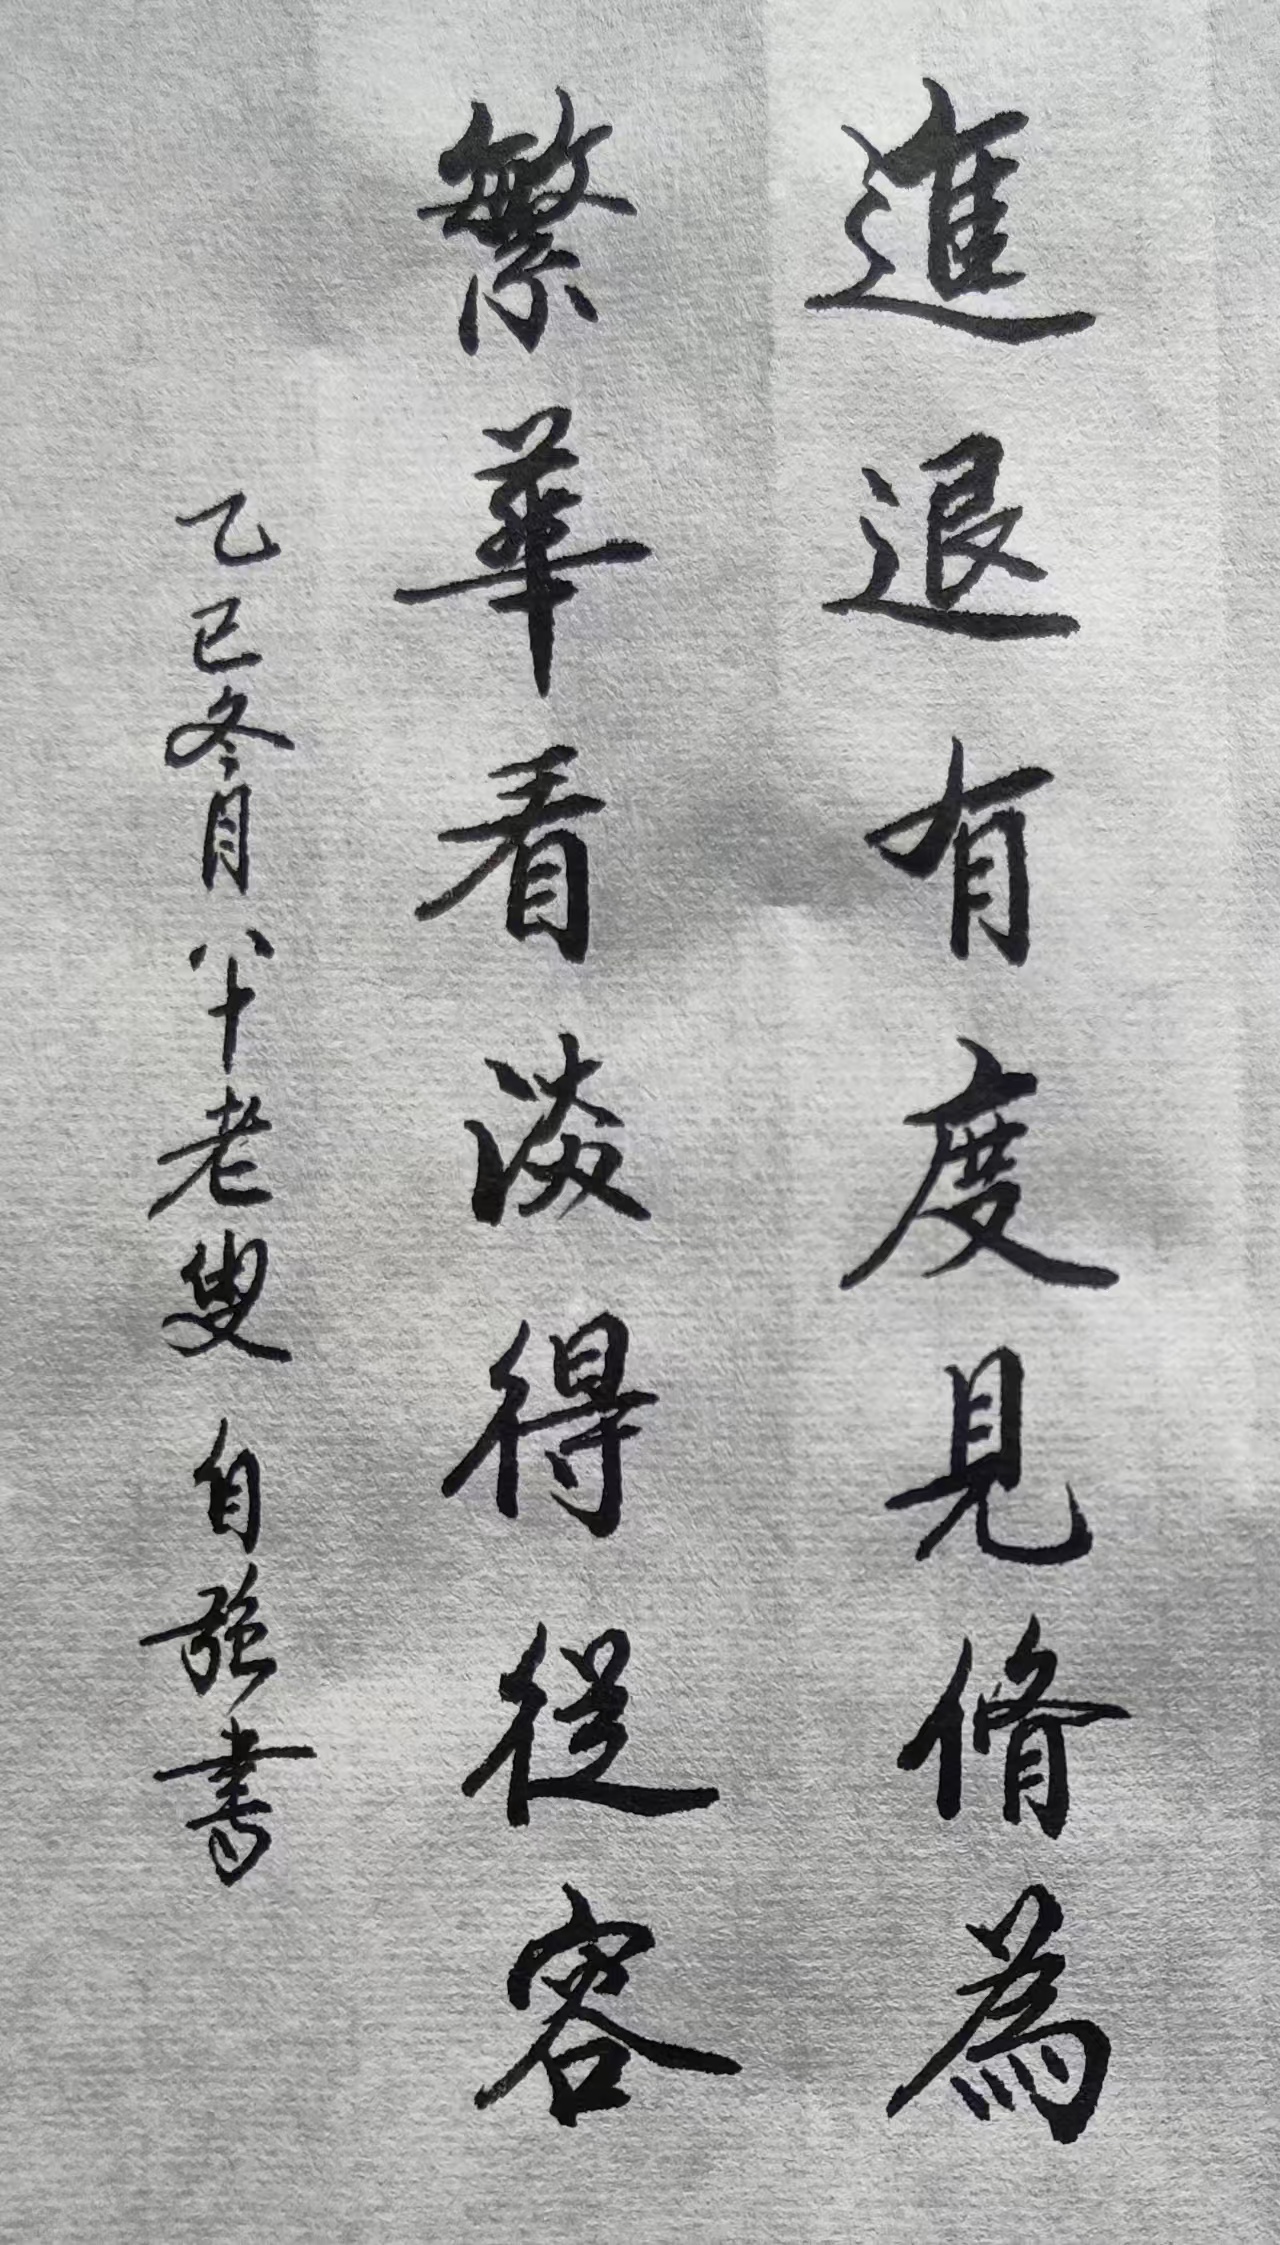 進退有度見脩為
繁華看淡得従容
乙巳冬月八十老叟 自強書